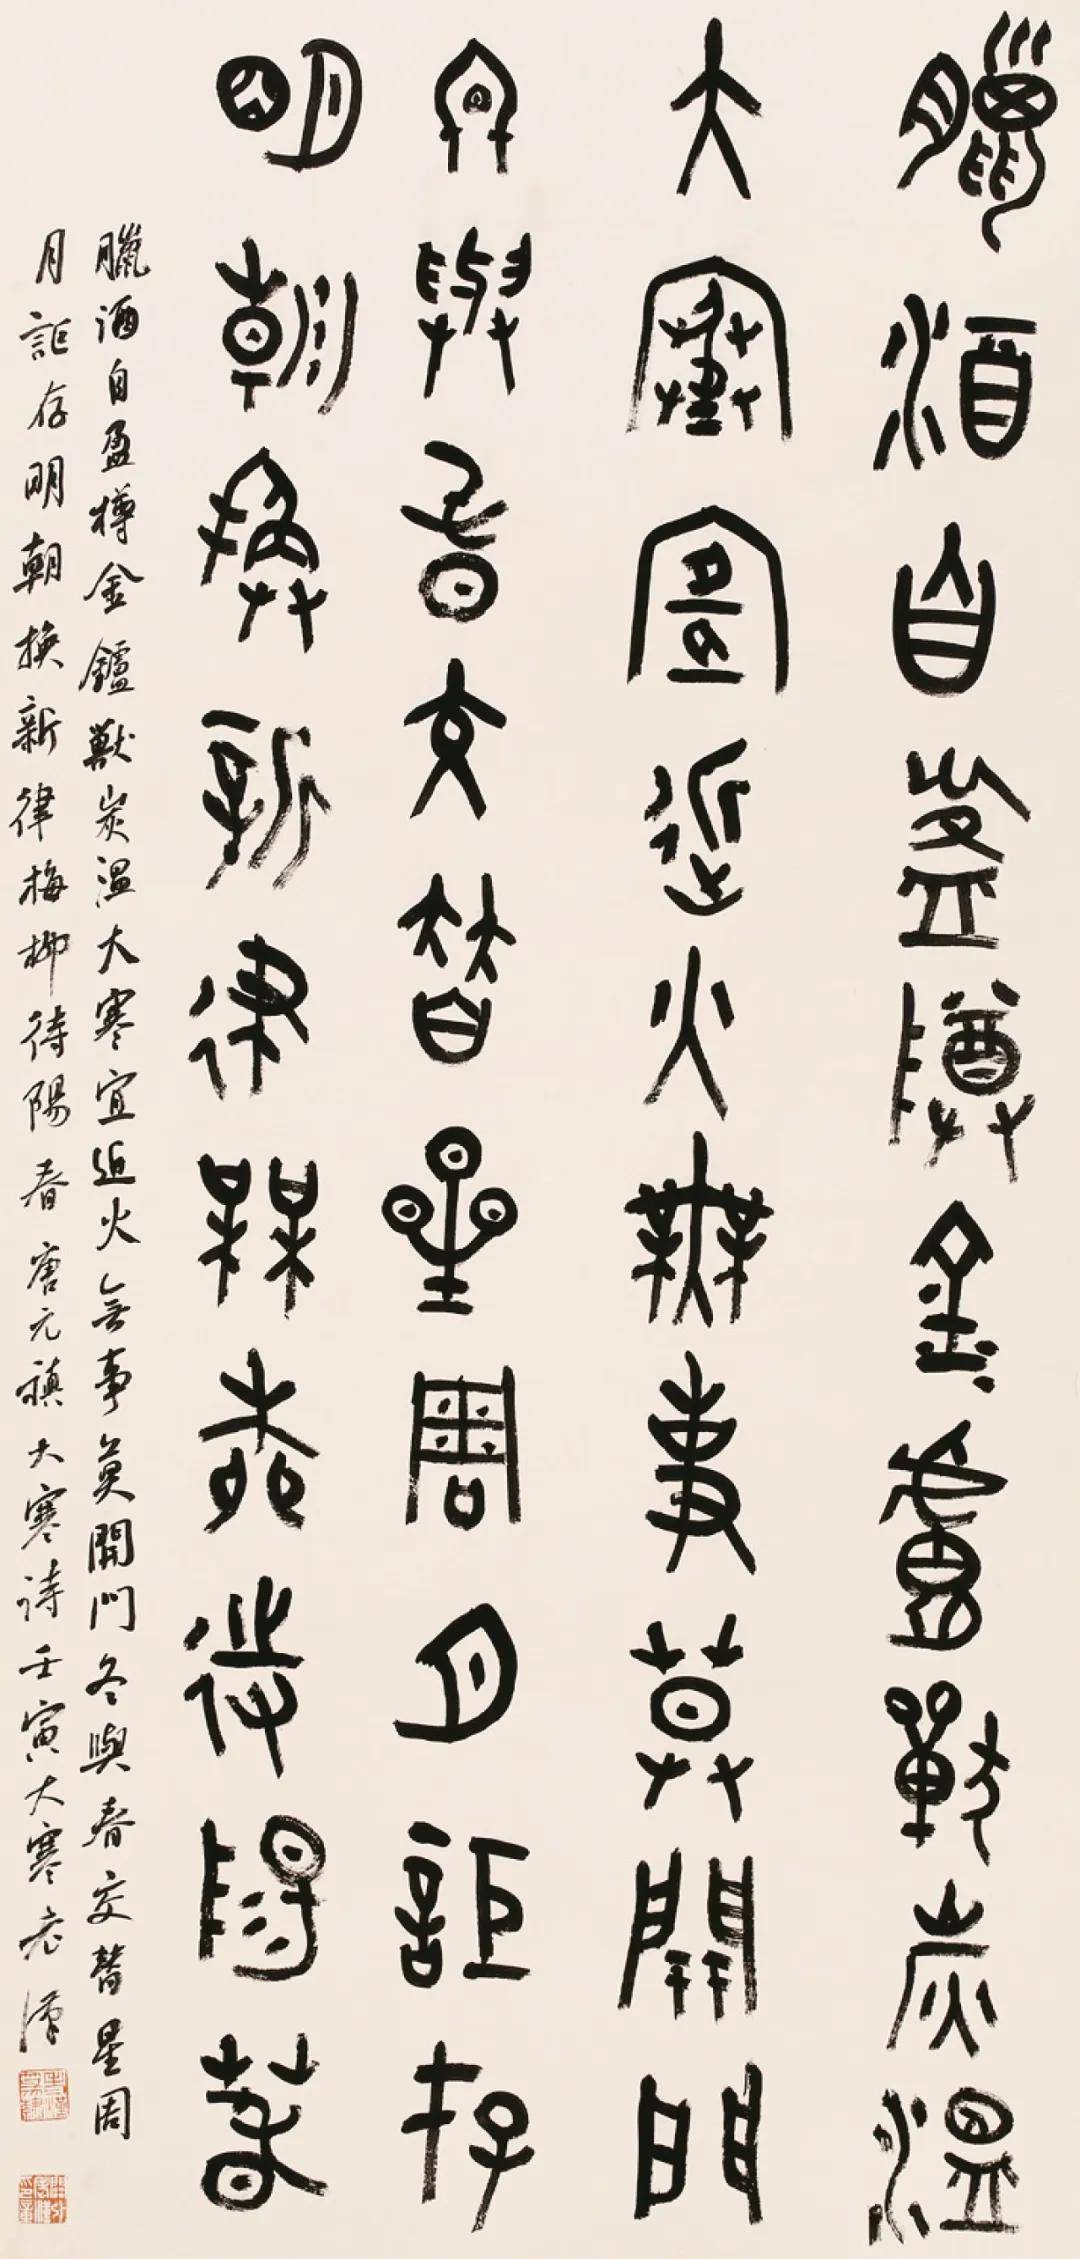 臘酒自盈樽金盧獸炭溫
大寒宜近火無事莫開門
冬與春交替星周月詎存
明朝換新律梅柳待陽春
臘酒自盈樽金鑪獸炭溫大寒宜近火無事莫開門冬與春交替星周
月詎存明朝換新律梅柳待陽春唐元稹大寒詩壬寅大寒